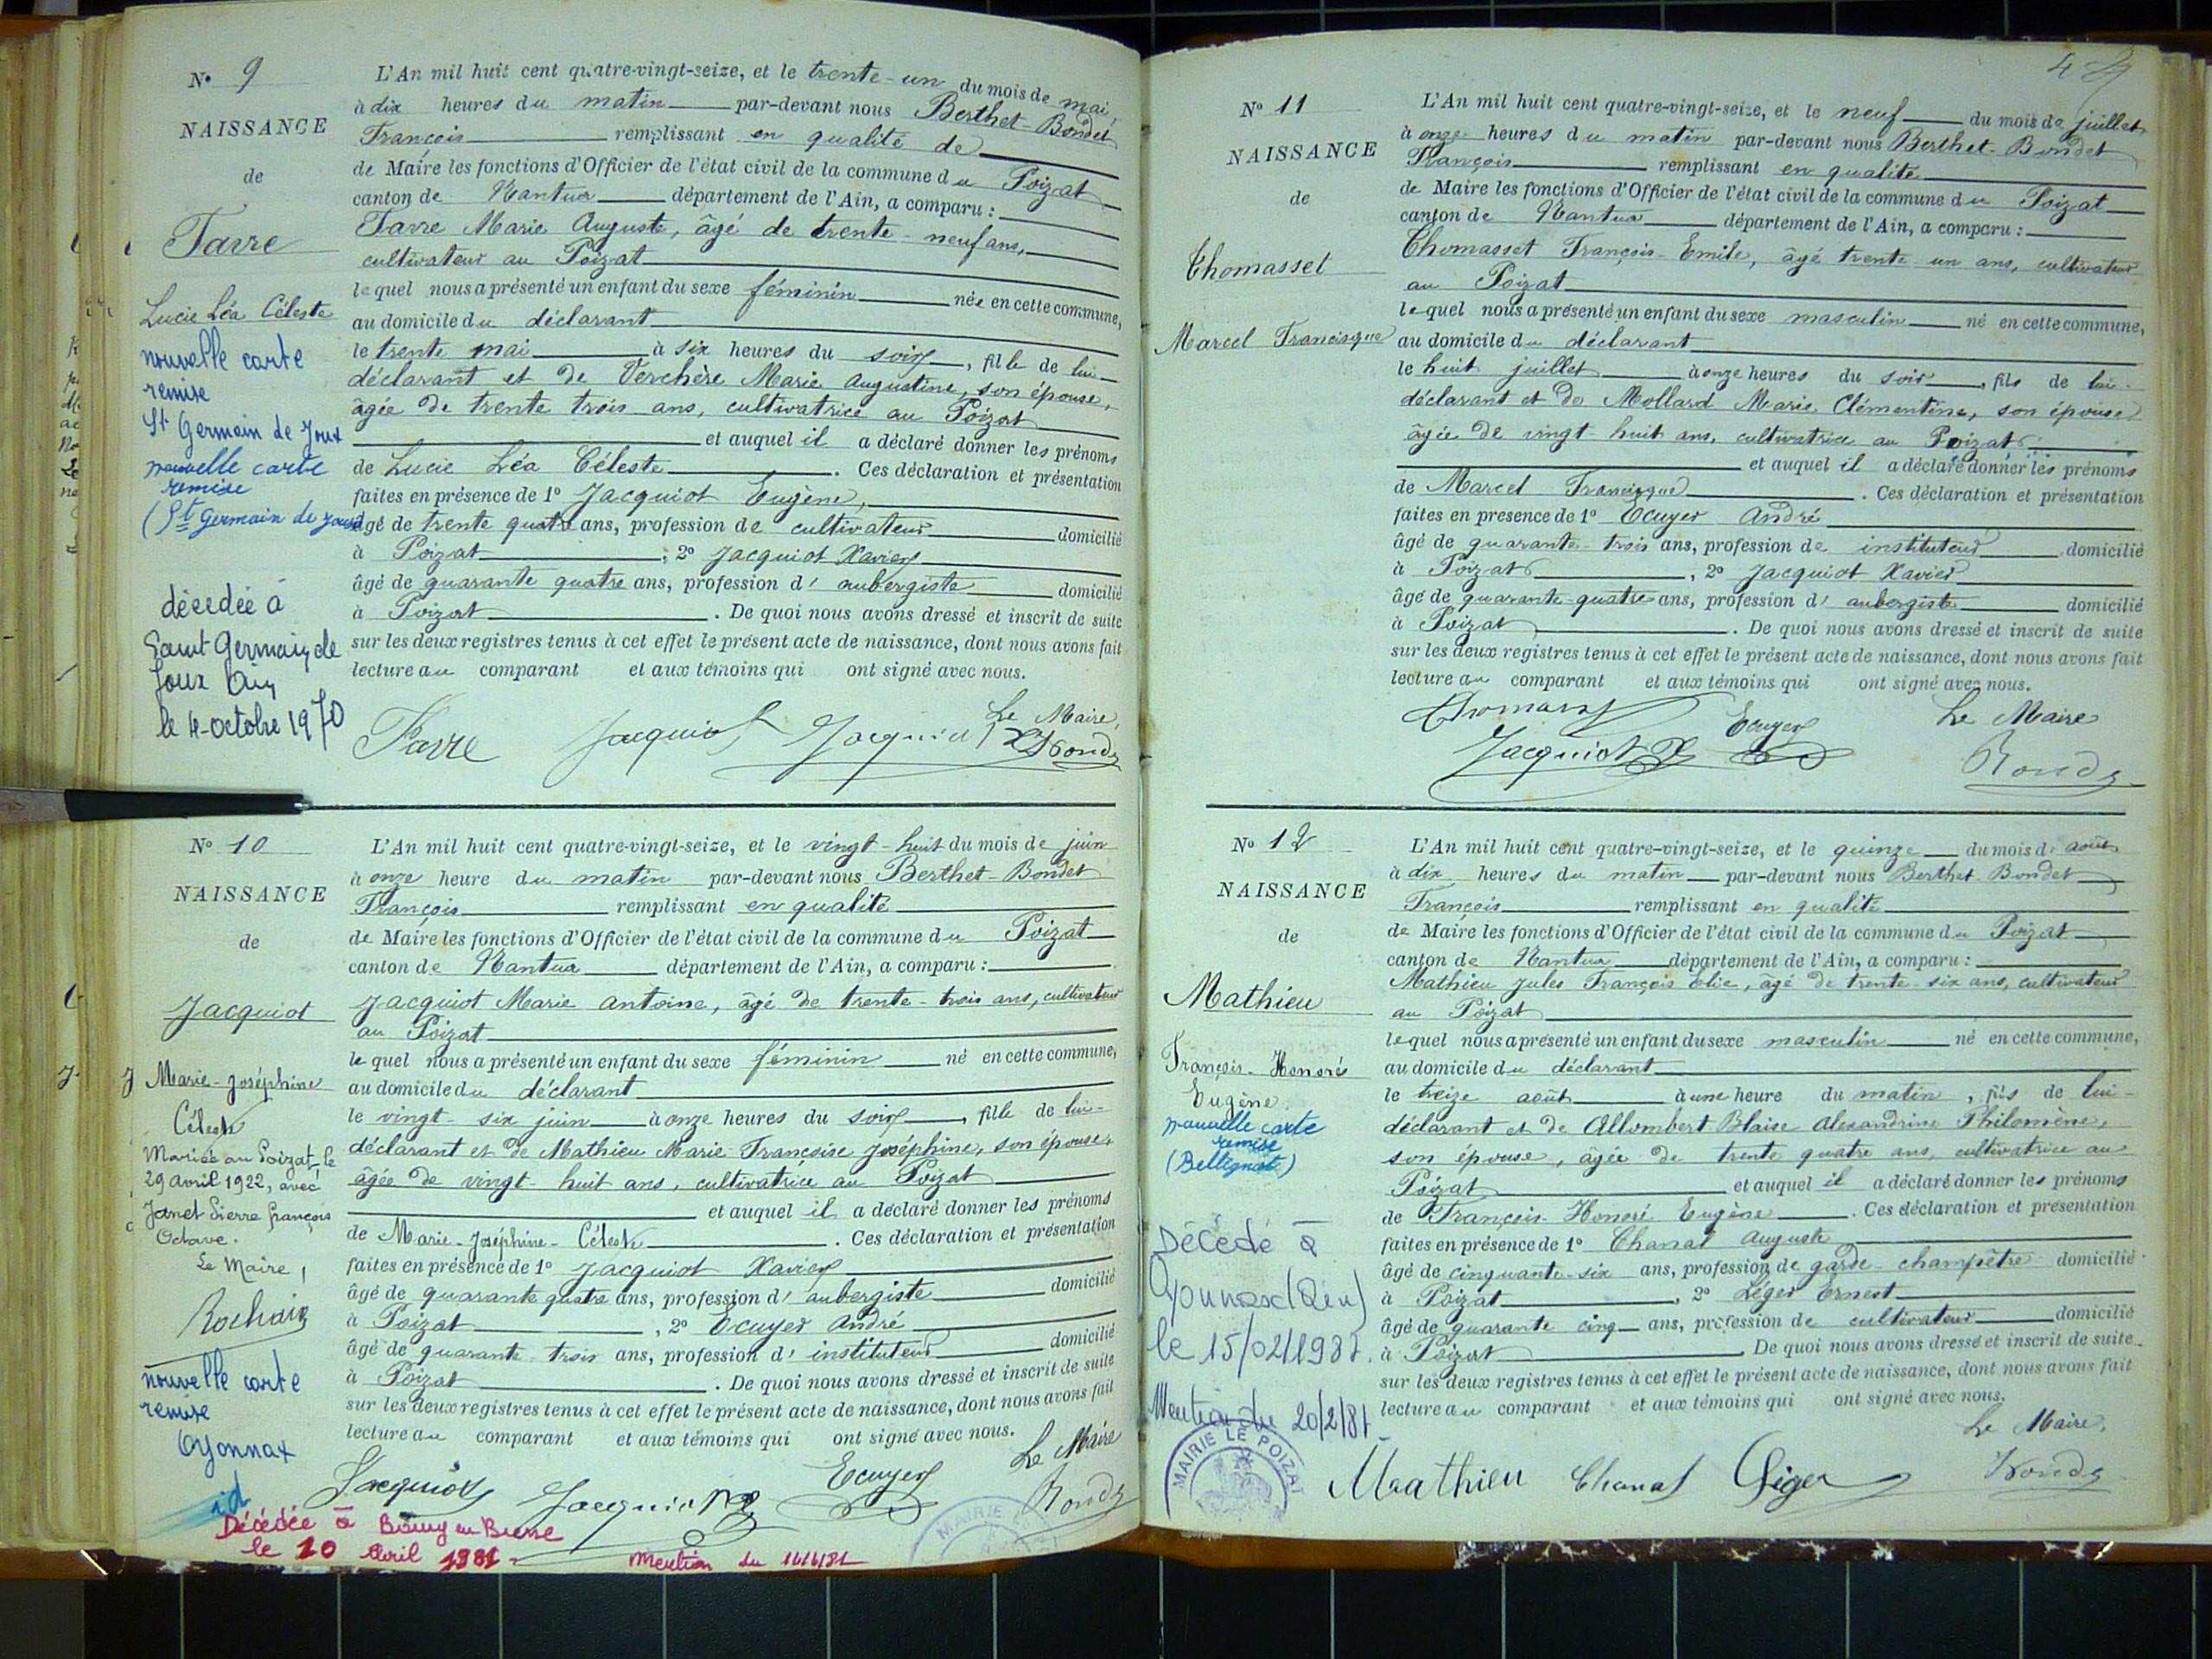 N° 9
NAISSANCE
de
Favre
Lucie Léa Céleste
nouvelle carte
remise
St Germain de Joux
nouvelle carte
remise
(St Germain de Joux
décédée à
Saint Germain de
Joux Ain
le 4 octobre 1970
L'An mil huit cent quatre-vingt-seize, et le trente-un du mois de mai,
à dix heures du matin par-devant nous Berthet-Bondet
François remplissant en qualité de
de Maire les fonctions d'Officier de l'état civil de la commune du Poizat
canton de Nantua département de l'Ain, a comparu :
Favre Marie Auguste, âgé de trente-neuf ans,
cultivateur au Poizat
lequel nous a présenté un enfant du sexe féminin née en cette commune,
au domicile du déclarant
le trente mai à six heures du soir, fille de lui
déclarant et de Verchère Marie Augustine, son épouse,
âgée de trente trois ans, cultivatrice au Poizat
et auquel il a déclaré donner les prénoms
de Lucie Léa Céleste. Ces déclaration et présentation
faites en présence de 1° Jacquiot Eugène,
âgé de trente quatre ans, profession de cultivateur domicilié
à Poizat, 2° Jacquiot Xavier
âgé de quarante quatre ans, profession d'aubergiste domicilié
à Poizat. De quoi nous avons dressé et inscrit de suite
sur les deux registres tenus à cet effet le présent acte de naissance, dont nous avons fait
lecture au comparant et aux témoins qui ont signé avec nous.
Le Maire,
Favre Jacquiot Jacquiot X
N° 10
NAISSANCE
de
Jacquiot
Marie-Joséphine
Céleste
Mariée au Poizat, le
29 avril 1922, avec
Janet Pierre François
Octave.
Le Maire,
Rochaix
nouvelle carte
remise
Oyonnax
id
Décédée à Bourg en Bresse
le 10 Avril 1981
Mention du 14/4/81
L'An mil huit cent quatre-vingt-seize, et le vingt-huit du mois de juin
à onze heure du matin par-devant nous Berthet-Bondet
François remplissant en qualité
de Maire les fonctions d'Officier de l'état civil de la commune du Poizat
canton de Nantua département de l'Ain, a comparu :
Jacquiot Marie Antoine, âgé de trente-trois ans, cultivateur
au Poizat
lequel nous a présenté un enfant du sexe féminin né en cette commune,
au domicile du déclarant
le vingt-six juin à onze heures du soir, fille de lui-
déclarant et de Mathieu Marie Françoise Joséphine, son épouse,
âgée de vingt-huit ans, cultivatrice au Poizat
et auquel il a déclaré donner les prénoms
de Marie-Joséphine-Céleste. Ces déclaration et présentation
faites en présence de 1° Jacquiot Xavier
âgé de quarante quatre ans, profession d'aubergiste domicilié
à Poizat, 2° Ecuyer André
âgé de quarante-trois ans, profession d'instituteur domicilié
à Poizat. De quoi nous avons dressé et inscrit de suite
sur les deux registres tenus à cet effet le présent acte de naissance, dont nous avons fait
lecture au comparant et aux témoins qui ont signé avec nous.
Le Maire
Jacquiot Jacquiot X Ecuyer
MAIRIE
N° 11
NAISSANCE
de
Thomasset
Marcel Francisque
L'An mil huit cent quatre-vingt-seize, et le neuf du mois de juillet
à onze heures du matin par-devant nous Berthet-Bondet
François remplissant en qualité
de Maire les fonctions d'Officier de l'état civil de la commune du Poizat
canton de Nantua département de l'Ain, a comparu :
Thomasset François-Emile, âgé trente-un ans, cultivateur
au Poizat
lequel nous a présenté un enfant du sexe masculin né en cette commune,
au domicile du déclarant
le huit juillet à onze heures du soir, fils de lui-
déclarant et de Mollard Marie Clémentine, son épouse
âgée de vingt-huit ans, cultivatrice au Poizat
et auquel il a déclaré donner les prénoms
de Marcel Francisque. Ces déclaration et présentation
faites en présence de 1° Ecuyer André
âgé de quarante-trois ans, profession de instituteur domicilié
à Poizat, 2° Jacquiot Xavier
âgé de quarante-quatre ans, profession d'aubergiste domicilié
à Poizat. De quoi nous avons dressé et inscrit de suite
sur les deux registres tenus à cet effet le présent acte de naissance, dont nous avons fait
lecture au comparant et aux témoins qui ont signé avec nous.
Thomasset Ecuyer Le Maire
Jacquiot X
N° 12
NAISSANCE
de
Mathieu
François-Honoré
Eugène
nouvelle carte
remise
(Bellignat)
Décédé à
Oyonnax (Ain)
le 15/02/1981.
Mention du 20/2/81
MAIRIE LE POIZAT
L'An mil huit cent quatre-vingt-seize, et le quinze du mois d'août
à dix heures du matin par-devant nous Berthet-Bondet
François remplissant en qualité
de Maire les fonctions d'Officier de l'état civil de la commune du Poizat
canton de Nantua département de l'Ain, a comparu :
Mathieu Jules François Elie, âgé de trente-six ans, cultivateur
au Poizat
lequel nous a présenté un enfant du sexe masculin né en cette commune,
au domicile du déclarant
le treize août à une heure du matin, fils de lui-
déclarant et de Allombert Blaise Alexandrine Philomène,
son épouse, âgée de trente quatre ans, cultivatrice au
Poizat et auquel il a déclaré donner les prénoms
de François-Honoré Eugène. Ces déclaration et présentation
faites en présence de 1° Chanal Auguste
âgé de cinquante-six ans, profession de garde-champêtre domicilié
à Poizat, 2° Léger Ernest
âgé de quarante cinq ans, profession de cultivateur domicilié
à Poizat. De quoi nous avons dressé et inscrit de suite
sur les deux registres tenus à cet effet le présent acte de naissance, dont nous avons fait
lecture au comparant et aux témoins qui ont signé avec nous.
Le Maire,
Mathieu Chanal